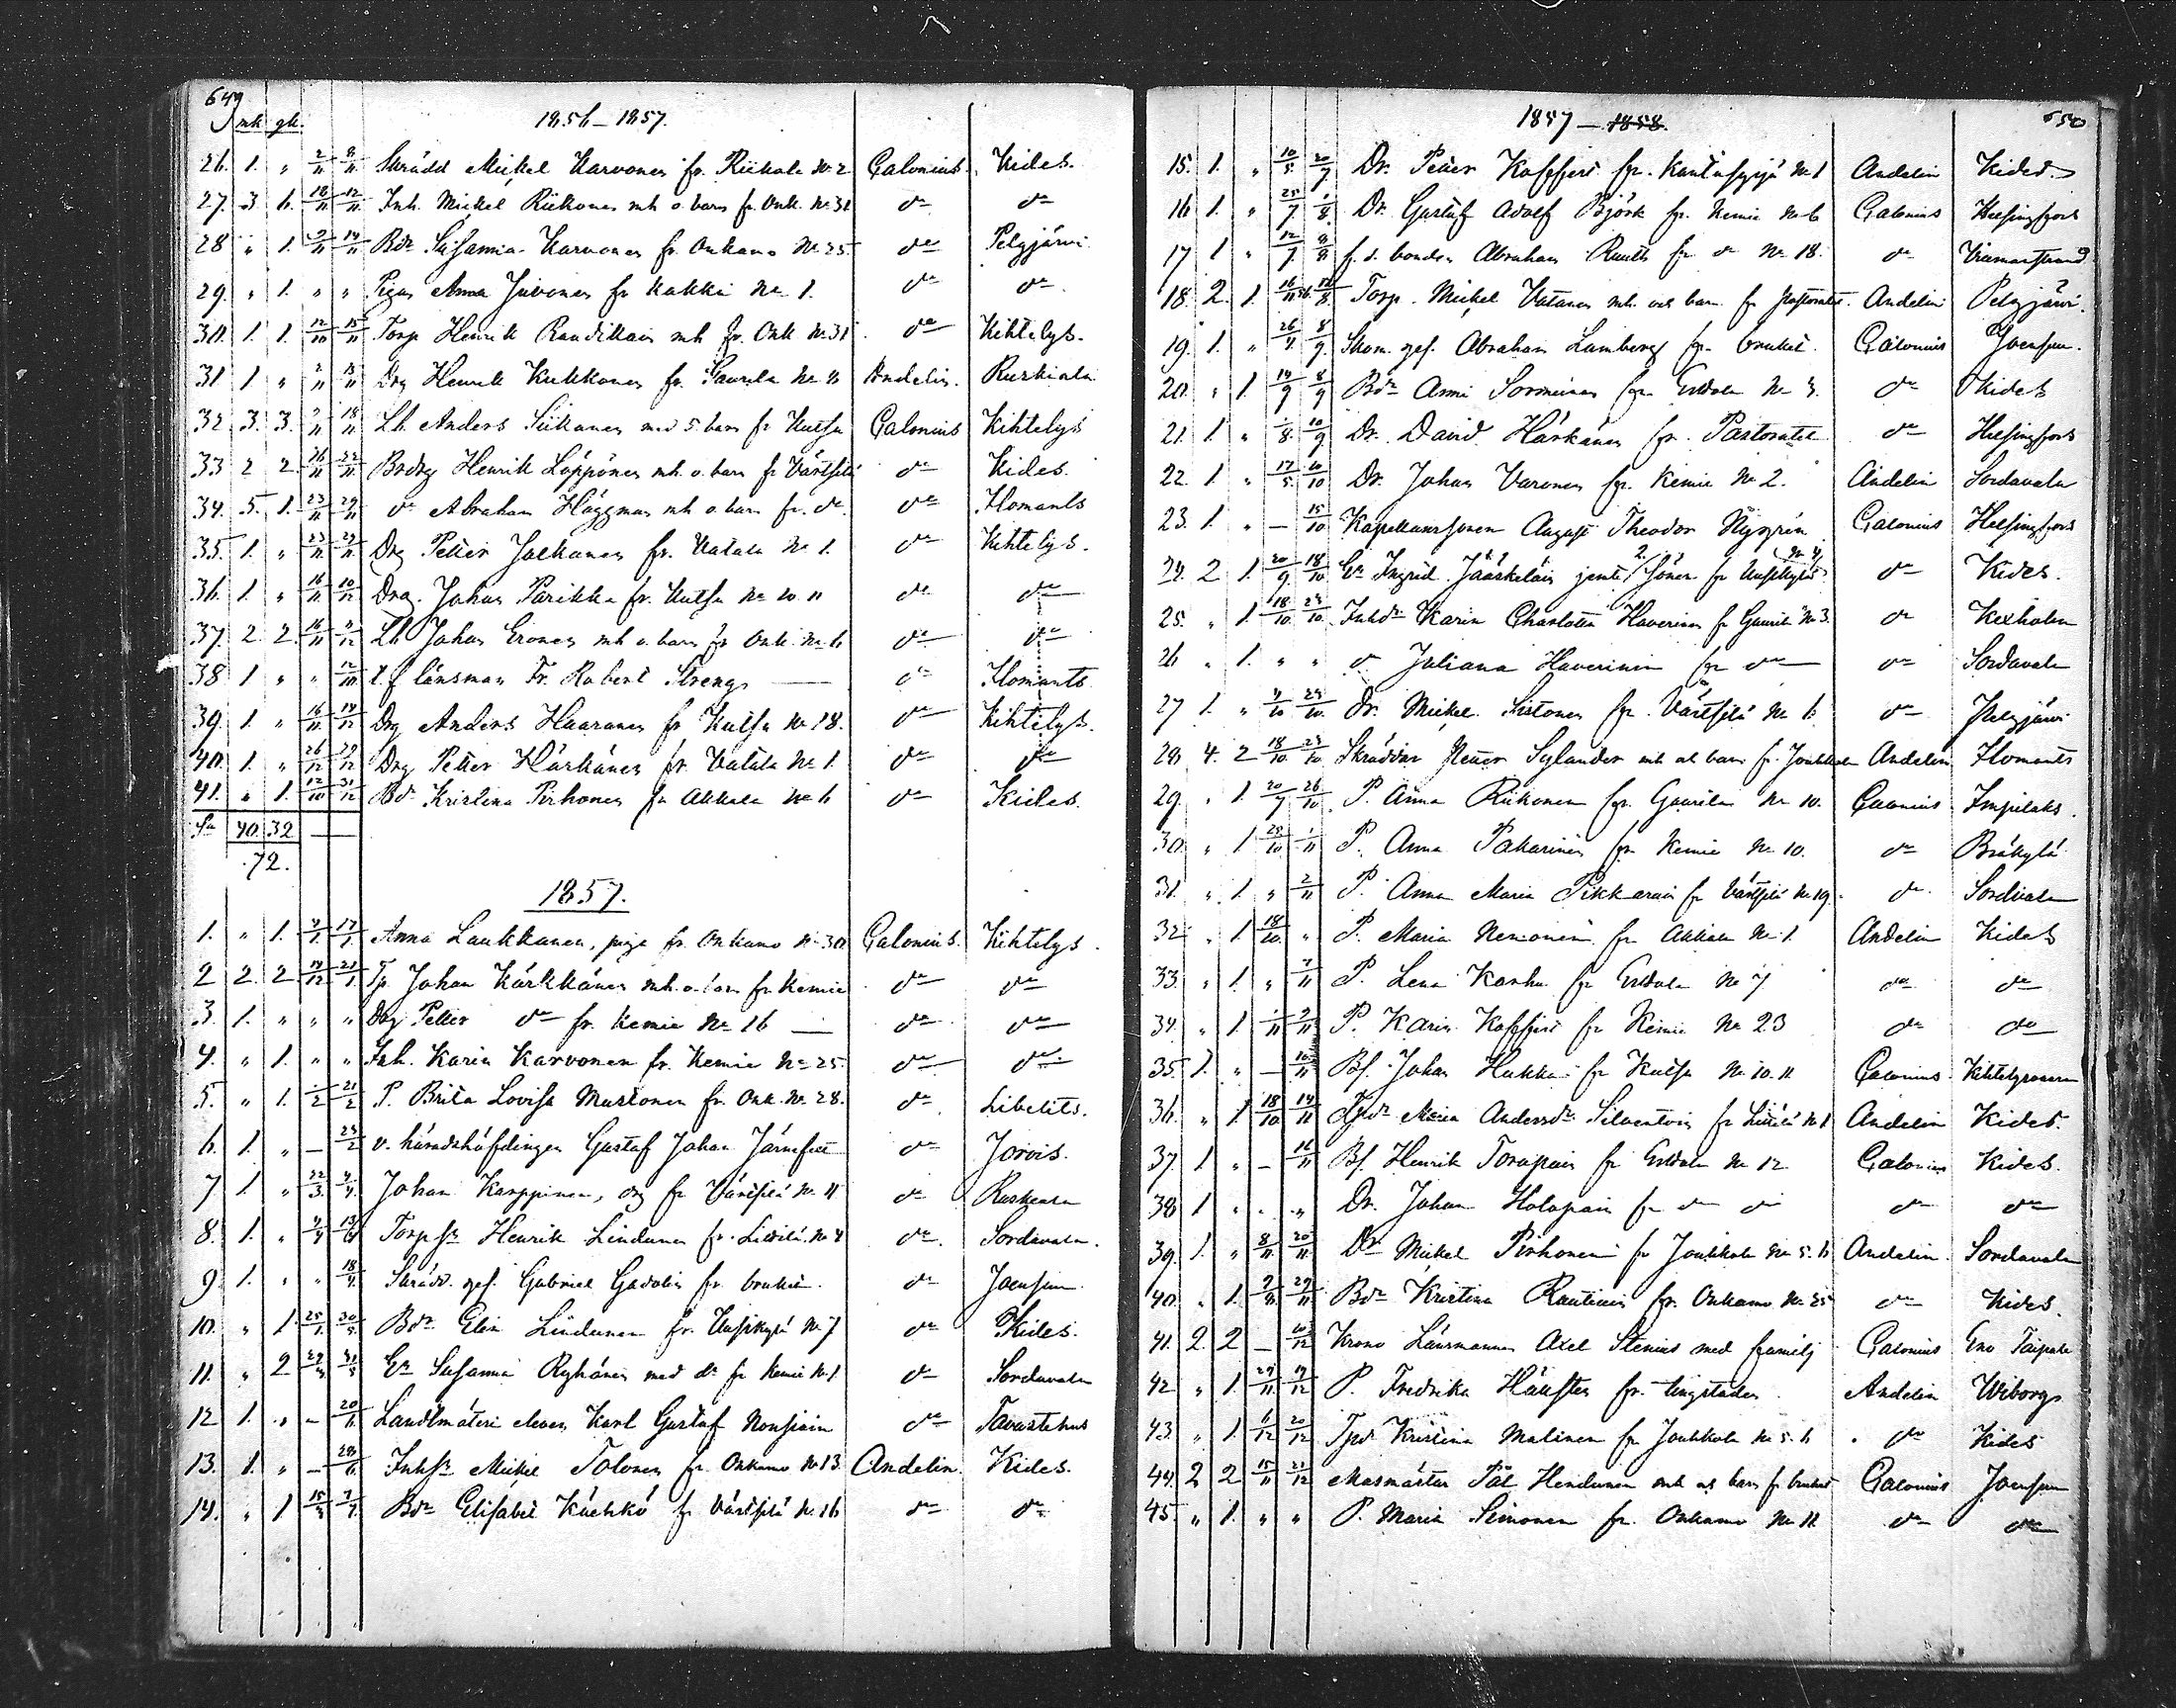 649
mk qk.
1856–1857.
26. 1. " 2/11 8/11 Skrädd Mickel Karvonen fr. Riikola N:o 2 Calonius. Kides.
27. 3. 1. 18/11 12/11 Inh. Mickel Riikonen mh o. barn fr. Onk. No 31 do do
28 " 1. 9/11 14/11 Bdr Susanna Karvonen fr Onkamo No 25 do Pelgjärvi
29. " 1. " " Pigan Anna Juvonen fr Kakku No 1. do do
30. 1. 1. 12/10 15/11 Torp Henrik Pandikain mh fr. Onk No 31 do Kihtelys.
31 1 " 2/11 15/11 Drg Henrik Kukkonen fr. Saurela No 8 Andelin. Ruskiala
32 3. 3. 2/11 18/11 Lh Anders Siikanen med 5 barn fr Kutsu Calonius Kihtelys
33 2 2. 16/11 22/11 Brdrg Henrik Löppönen mh. o. barn fr Värtsilä do Kides.
34. 5. 1. 23/11 29/11 do Abraham Häggman mh o. barn fr. do do Ilomants
35. 1. " 23/11 29/11 Drg Petter Jalkanen fr. Vatala No 1. do Kihtelys.
36. 1 " 16/11 10/12 Drg. Johan Parikka fr. Kutsu No 10. 11 do do
37. 2 2. 16/11 9/12 Lh Johan Eronen mh o. barn fr Onk. No 6 do do
38 1 " " 12/10 t. f länsman Fr. Robert Streng — do Ilomants
39. 1. " 16/11 14/12 Drg Anders Haaranen fr Kutsu No 18. do Kihtelys.
40. 1. " 26/12 29/12 Drg Petter Härkänen fr Vatala No 1. do do
41. " 1. 12/10 31/12 Bdr Kristina Pirhonen fr Akkala No 6 do Kides.
Sa 40. 32 —
72.
1857.
1. " 1. 4/1 17/1 Anna Laukkanen, piga fr. Onkamo No 30 Calonius. Kihtelys.
2 2. 2 14/12 21/1 Tp. Johan Kärkkänen mh. o. barn fr Kemie do do
3. 1. " " " Drg Petter do fr. Kemie No 16 — do do
4. " 1. " " Inh. Karin Karvonen fr. Kemie No 25. do do
5. " 1. 1/2 21/2 P. Brita Lovisa Mustonen fr. Onk. No. 28. do Libelits.
6. 1. " – 25/2 v. häradshöfdingen Gustaf Johan Järnefelt do Jorois.
7 1. " 22/3 4/4 Johan Karppinen, drg fr Värtsilä No 11 do Ruskeala
8. 1. " 4/4 Torp Sn Henrik Lindunen fr. No 4 do Sordavala.
9 1. " " 18/4 Skrädd. ges. Gabriel Gadolin fr. bruket. do Joensuu
10. " 1 25/1 30/5 Bdr Elin Lindunen fr. Uusikylä No 7 do Kides.
11. " 2 29/5 31/5 En Susanna Ryhänen med do fr Kemie No 1 do Sordavala
12 1. " – 20/6 Landtmäteri eleven Karl Gustaf do Tavastehus
13. 1. " – 28/6 Mickel Tolonen fr. Onkamo No 13. Andelin. Kides.
14. " 1 7/7 Bdr Elisabet fr Värtsilä No 16 do do
650
1857 – 1858.
15. 1. " 10/5 20/7 Dr. Petter No 1 Andelin Kides.
16 1. " 25/7 1/8 Dr. Gustaf Adolf Björk fr. Kemie No 6 Calonius Helsingfors
17 1 " 12/7 8/8 f. d. bonden Abraham Ruuth fr do No 18. do
18. 2. 1. Torp. Mickel Vatanen mh. och barn fr pastoratet. Andelin Pelgjärvi.
19. 1. " 8/9 Skom. ges. Abraham Lamberg fr. bruket. Calonius Joensuu.
20. " 1. 14/9 8/9 Bdr Anna Sorminen fr. do Kides
21. 1. " 1/8 10/9 Dr. David Härkänen fr. Pastoratet do Helsingfors
22. 1 " 17/5 10/10 Dr. Johan Varonen fr. Kemie No 2. Andelin Sordavala
23. 1. " – 15/10 Kapellanssonen August Theodor Nygrén. Calonius Helsingfors
24. 2 1. 20/9 18/10 En Ingrid Jääskeläin jemte 2 söner fr Uusikylä No 4 do Kides.
25. " 1. 18/10 25/10 Inhdr Karin Charlotta Haverinen fr No 3. do Kexholm
26 " 1. " " do Juliana Haverinen fr do do Sordavala
27 1. " 4/10 25/10 Dr. Mickel Sistonen fr. Värtsilä No 6 do Pelgjärvi
28 4. 2 18/10 25/10 Skräddar Petter Sylander mh och barn fr. Joukkola Andelin Ilomants
29. " 1. 20/7 26/10 P. Anna Riikonen fr. Gaurila No 10. Calonius Impilaks.
30. " 1 25/10 1/11 P. Anna Pakarinen fr Kemie No 10. do Bräkylä
31. " 1. " 2/11 P. Anna Maria Pikkarain fr Värtsilä No 19. do Sordvala
32 " 1 18/10 " P. Maria fr Akkala No 1. Andelin Kides
33. " 1. " 7/11 P. Lena Karhu fr No 7 do do
34. " 1 1/11 9/11 P. Karin fr Kemie No 23 do do
35. 1. " – 10/11 Bs. Johan Hukka fr Kutsu No 10. 11. Calonius.
36. " 1 18/10 14/11 Tpdr Maria Andersdr Silventoin fr No 1 Andelin Kides.
37 1. " – 16/11 Bs. Henrik Toropain fr No 12 Calonius Kides.
38 1 " " " Dr. Johan Holopain fr do do do do
39. 1. " 8/11 20/11 Dr Mickel Pirhonen fr Joukkola No 5. 6 Andelin. Sordavala
40. " 1. 29/11 Bdr Kristina Rautiain fr. Onkamo No 25 do Kides.
41. 2. 2 – 10/12 Krono Länsmannen Axel Stenius med familj Calonius Eno Taipale
42 " 1. 29/11 P. Fredrika fr. Andelin Wiborgs
43. " 1. 6/12 20/12 Tpdr Kristina Malinen fr Joukkola No 5. 6 do Kides
44. 2 2 15/11 21/12 Masmästar Pål mh och barn fr bruket Calonius Joensuu
45 " 1. " " P. Maria Simonen fr. Onkamo No 11 do do